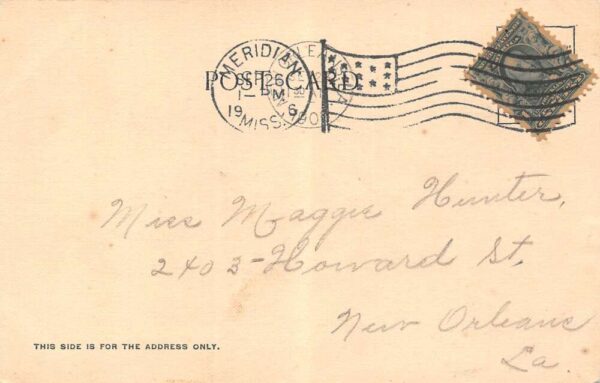 MERIDIAN
SEP 26
1 - PM
19 6
MISS.
POST CARD
Miss Maggie Hunter,
2403-Howard St,
New Orleans
La.
THIS SIDE IS FOR THE ADDRESS ONLY.